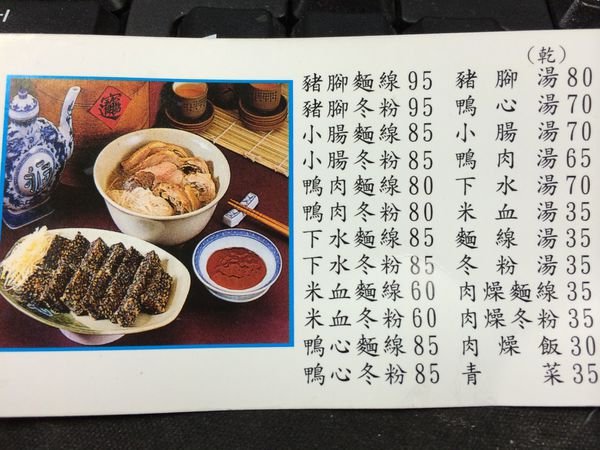 (乾)
豬腳麵線95 豬腳湯80
豬腳冬粉95 鴨心湯70
小腸麵線85 小腸湯70
小腸冬粉85 鴨肉湯65
鴨肉麵線80 下水湯70
鴨肉冬粉80 米血湯35
下水麵線85 麵線湯35
下水冬粉85 冬粉湯35
米血麵線60 肉燥麵線35
米血冬粉60 肉燥冬粉35
鴨心麵線85 肉燥飯30
鴨心冬粉85 青菜35